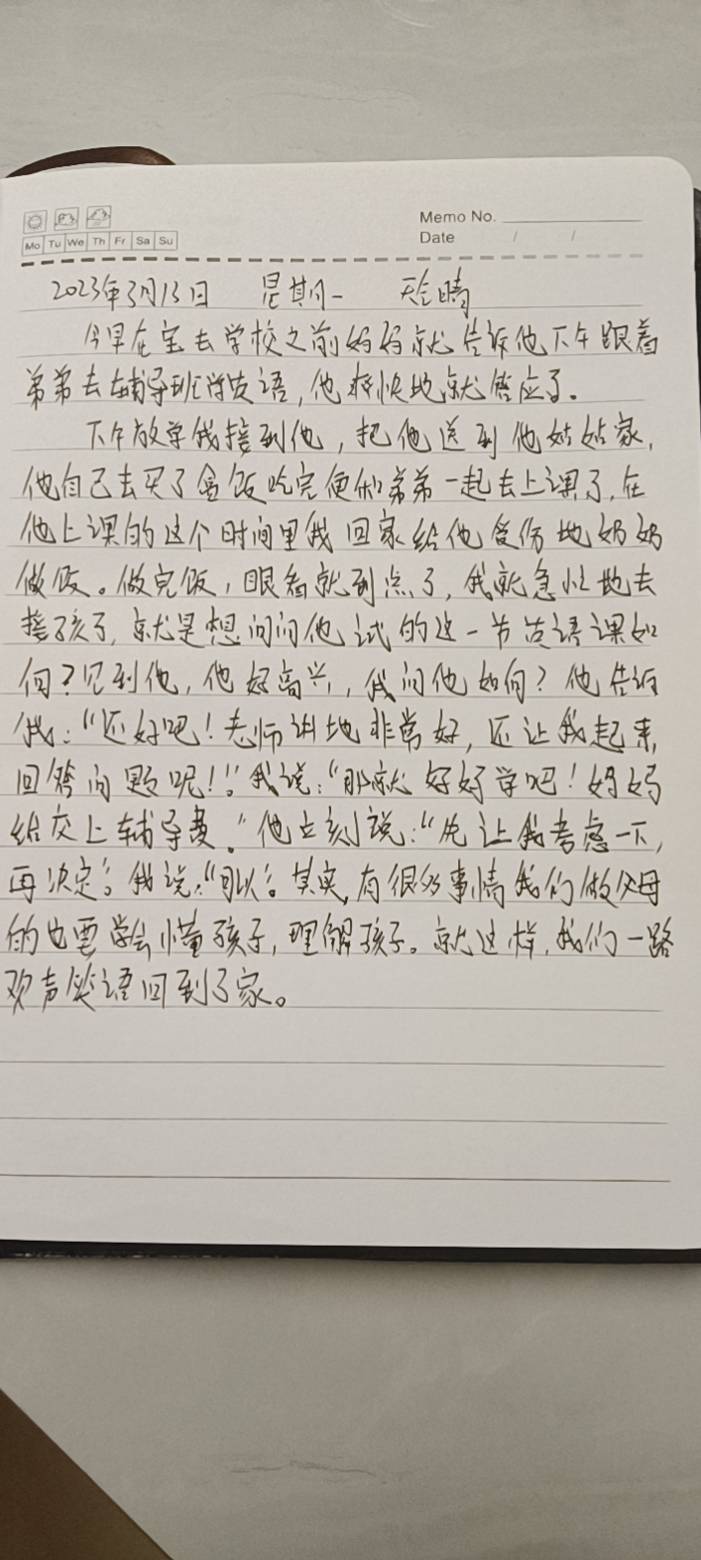 Memo No.
Mo Tu We Th Fr Sa Su
Date / /
2023年3月13日 星期一 天气晴
今早在宝去学校之前妈妈就告诉他下午跟着
弟弟去辅导班听英语,他爽快地就答应了。
下午放学我接到他,把他送到他姑姑家,
他自己去买了盒饭吃完便和弟弟一起去上课了,在
他上课的这个时间里我回家给他受伤地奶奶
做饭。做完饭,眼看就到点了,我就急忙地去
接孩子,就是想问问他试的这一节英语课如
何?见到他,他好高兴,我问他如何?他告诉
我:“还好吧!老师讲地非常好,还让我起来,
回答问题呢!”我说:“那就好好学吧!妈妈
给交上辅导费。”他立刻说:“先让我考虑一下,
再决定”。我说:“可以”。其实,有很多事情我们做父母
的也要学会懂孩子,理解孩子。就这样,我们一路
欢声笑语回到了家。